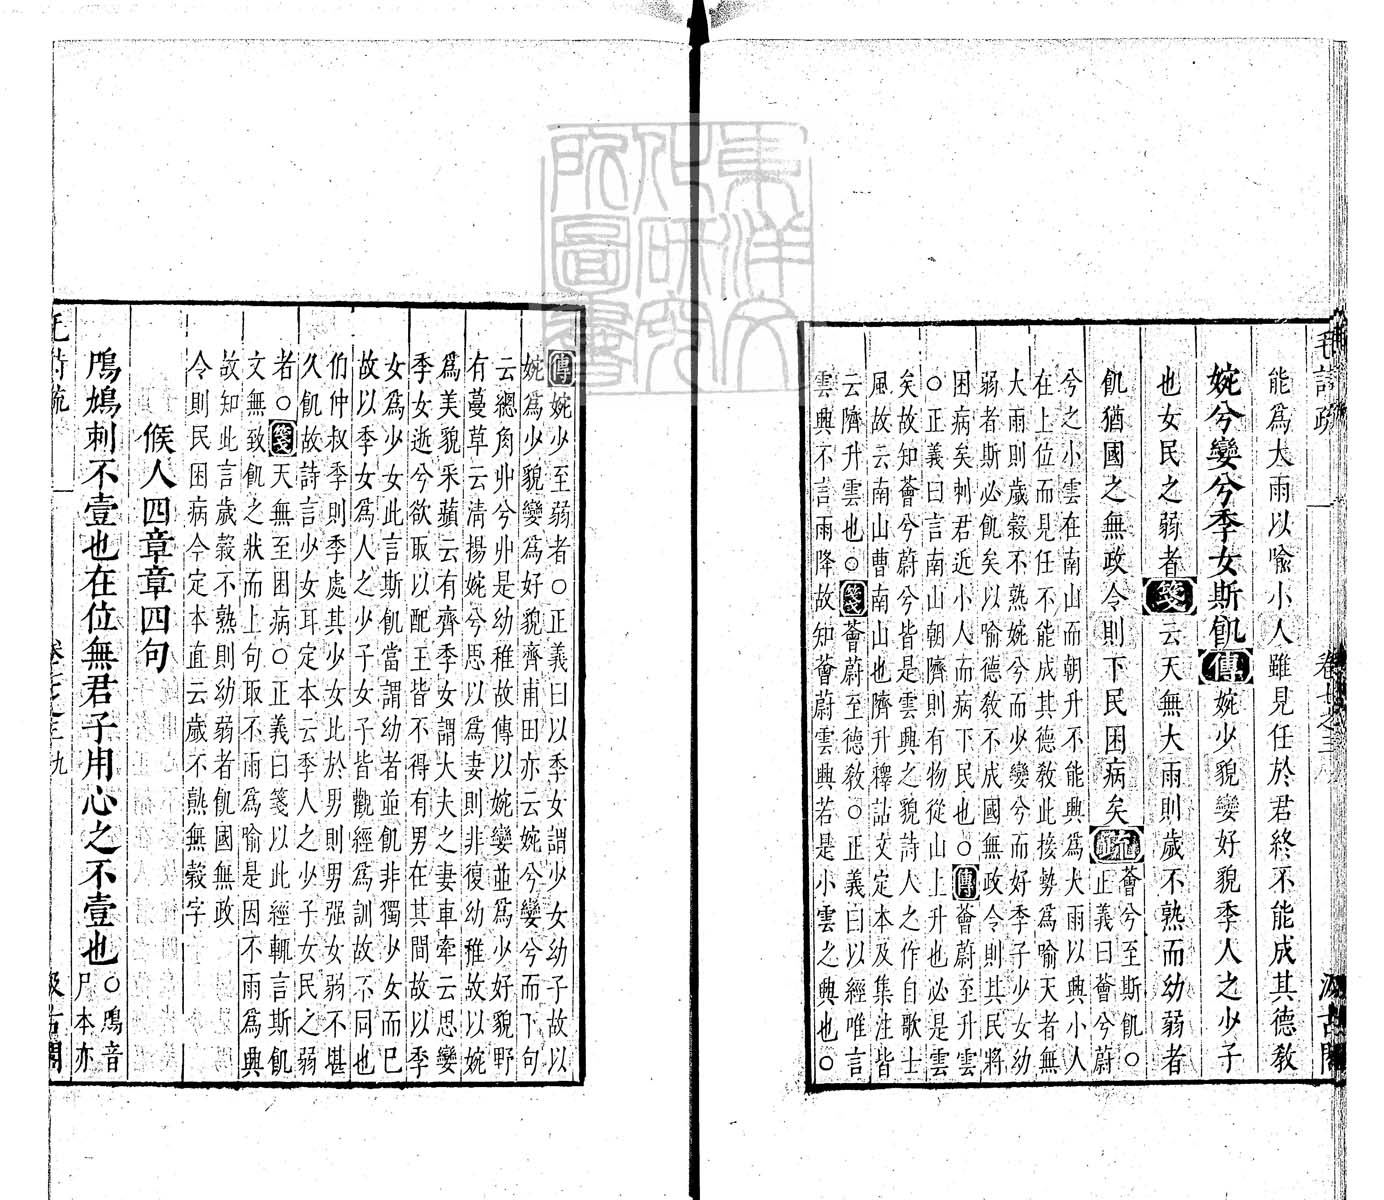 毛詩疏
卷七之三
汲古閣
能爲大雨以喻小人雖見任於君終不能成其德教
婉兮孌兮季女斯飢傳婉少貌孌好貌季人之少子
也女民之弱者箋云天無大雨則歲不熟而幼弱者
飢猶國之無政令則下民困病矣疏薈兮至斯飢○
正義曰薈兮蔚
兮之小雲在南山而朝升不能興爲大雨以興小人
在上位而見任不能成其德教此接勢爲喻天者無
大雨則歲穀不熟婉兮而少孌兮而好季子少女幼
弱者斯必飢矣以喻德教不成國無政令則其民將
困病矣刺君近小人而病下民也○傳薈蔚至升雲
○正義曰言南山朝隮則有物從山上升也必是雲
矣故知薈兮蔚兮皆是雲興之貌詩人之作自歌土
風故云南山曹南山也隮升釋詁文定本及集注皆
云隮升雲也○箋薈蔚至德教○正義曰以經唯言
雲興不言雨降故知薈蔚雲興若是小雲之興也○
傳婉少至弱者○正義曰以季女謂少女幼子故以
婉爲少貌孌爲好貌齊甫田亦云婉兮孌兮而下句
云總角丱兮丱是幼稚故傳以婉孌並爲少好貌野
有蔓草云清揚婉兮思以爲妻則非復幼稚故以婉
爲美貌采蘋云有齊季女謂大夫之妻車舝云思孌
季女逝兮欲取以配王皆不得有男在其間故以季
女爲少女此言斯飢當謂幼者並飢非獨少女而已
故以季女爲人之少子女子皆觀經爲訓故不同也
伯仲叔季則季處其少女此於男則男强女弱不堪
久飢故詩言少女耳定本云季人之少子女民之弱
者○箋天無至困病○正義曰箋以此經輒言斯飢
文無致飢之狀而上句取不雨爲喻是因不雨爲興
故知此言歲穀不熟則幼弱者飢國無政
令則民困病今定本直云歲不熟無穀字
候人四章章四句
鳲鳩刺不壹也在位無君子用心之不壹也○鳲音
尸本亦
毛詩疏
卷七之三
九
汲古閣
東洋文化研究所圖書